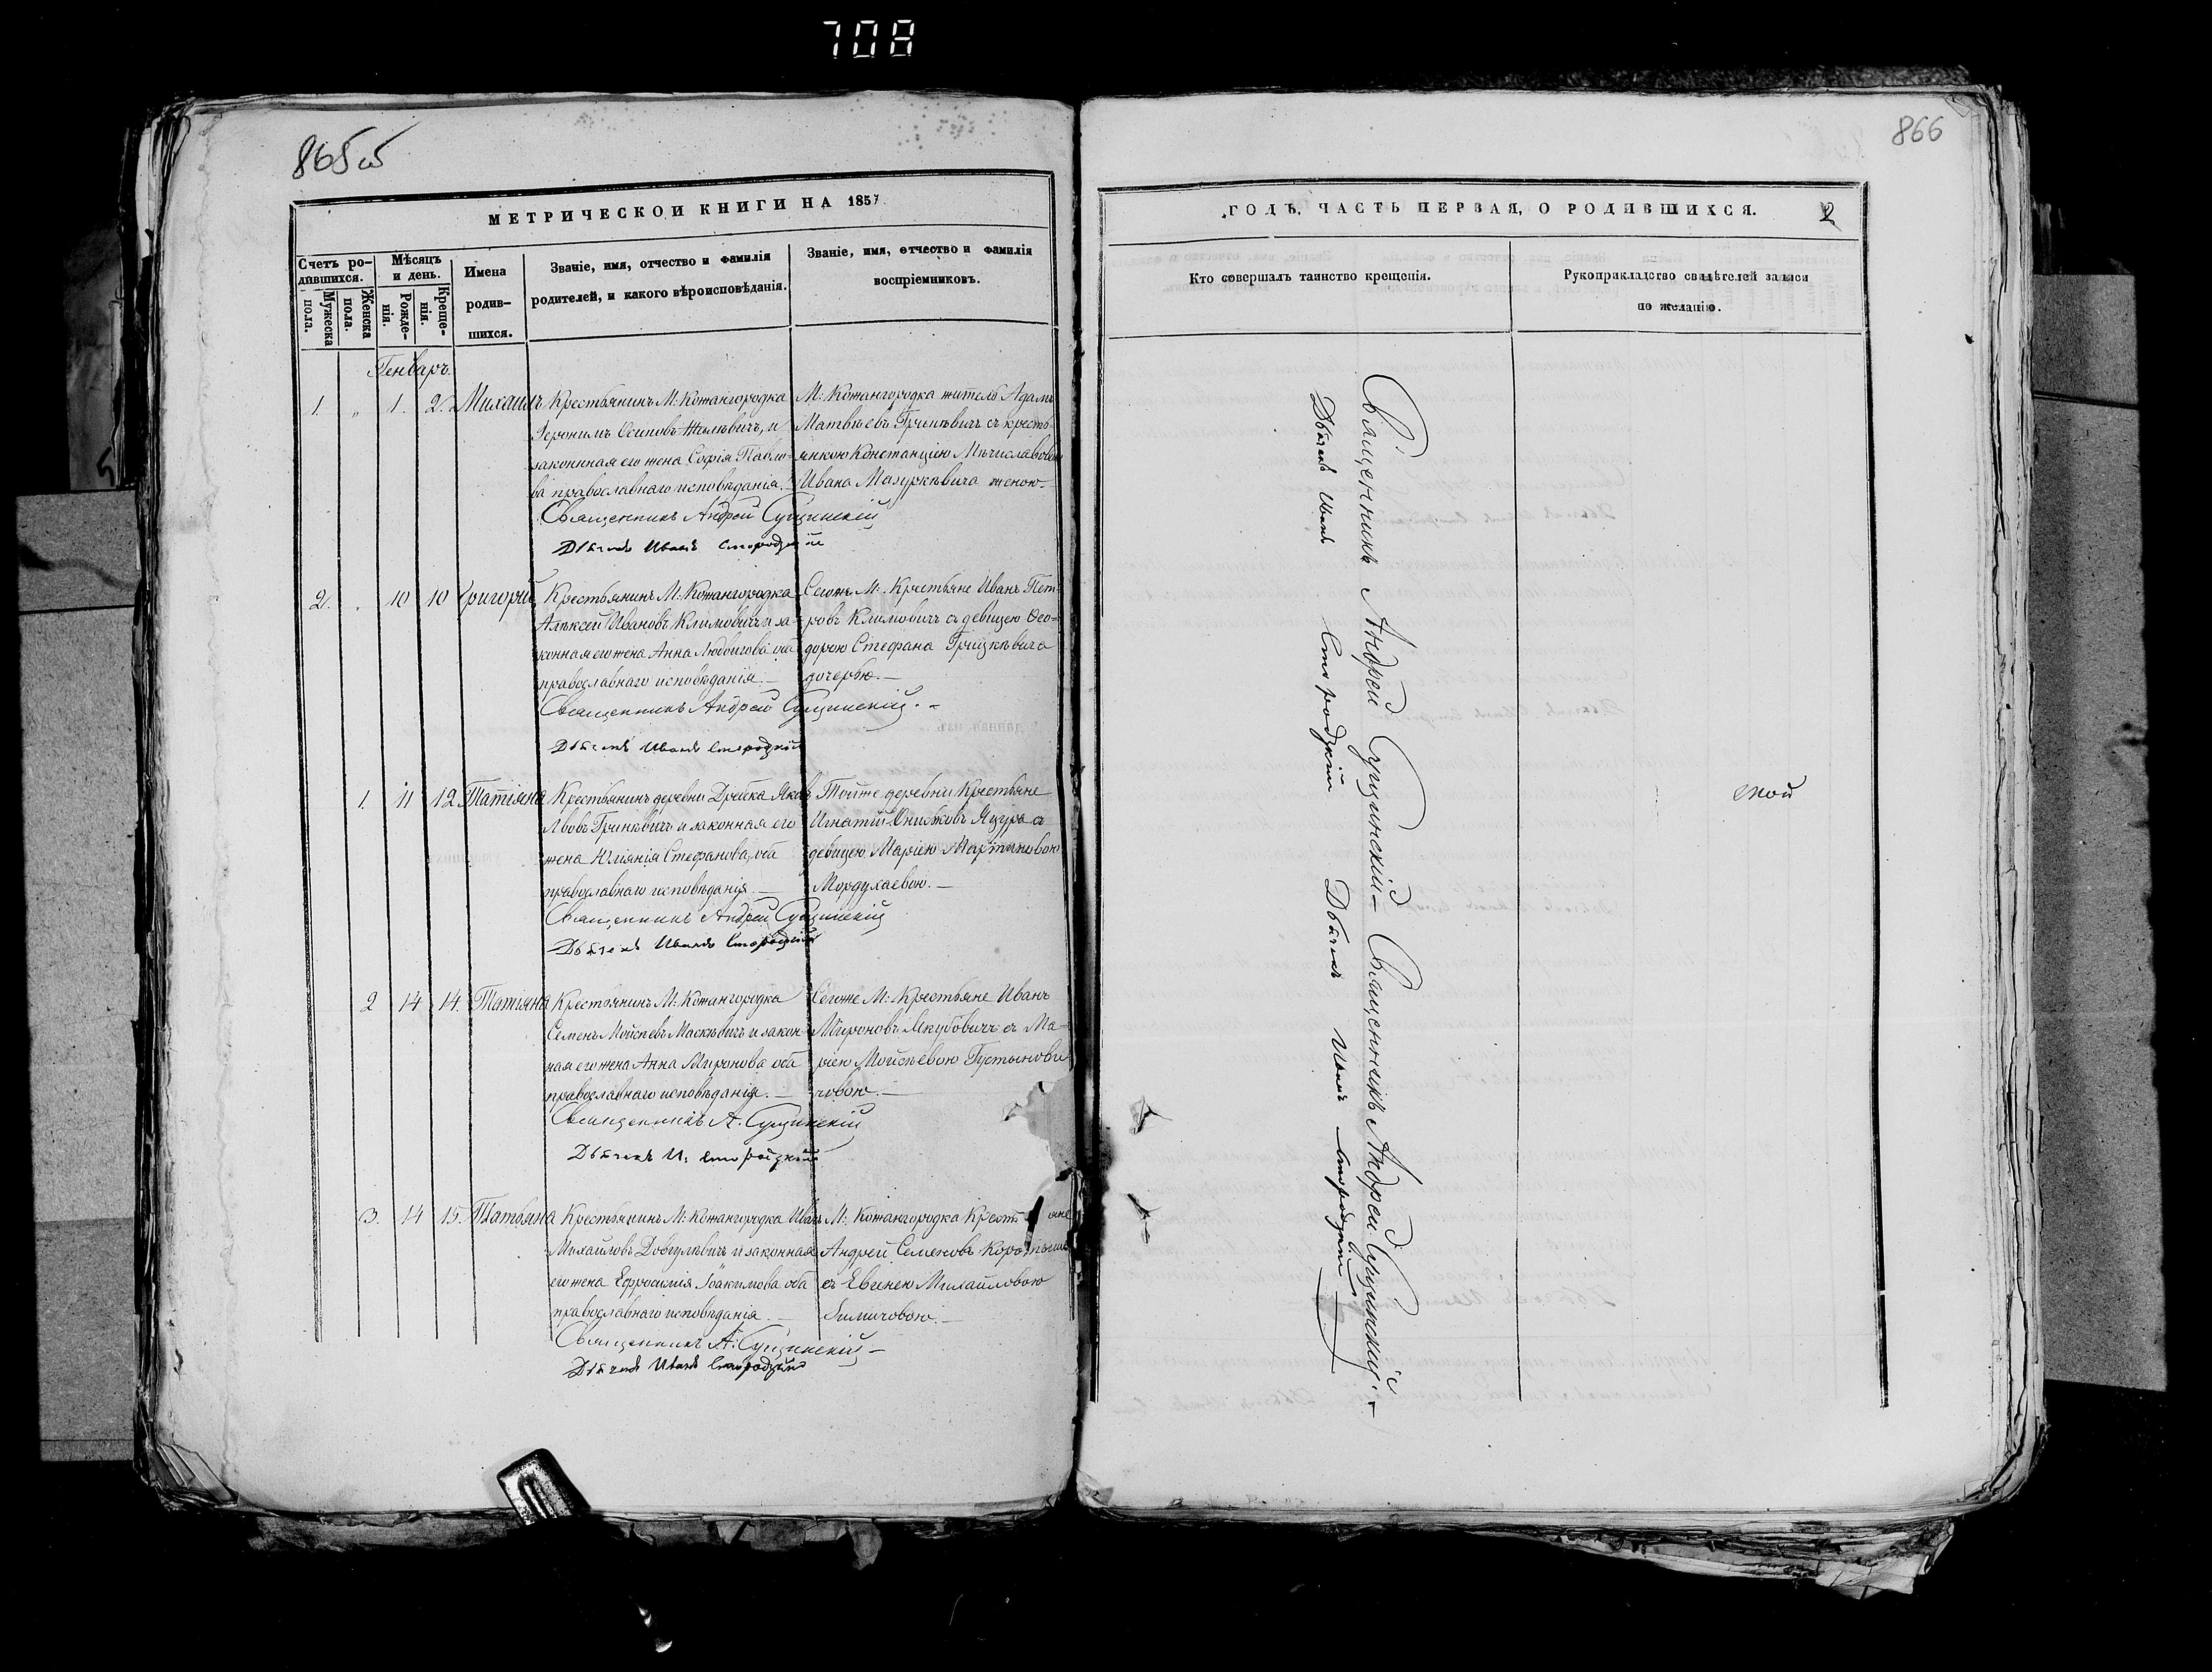 708
865об
МЕТРИЧЕСКОЙ КНИГИ НА 1857
Счетъ родившихся.
Мужеска пола.
Женска пола.
Мѣсяцъ и день.
Рожденія.
Крещенія.
Имена родившихся.
Званіе, имя, отчество и фамилія
родителей, и какого вѣроисповѣданія.
Званіе, имя, отчество и фамилія
воспріемниковъ.
Генварь.
1. " 1. 2. Михаилъ
Крестьянинъ М: Кожангородка
Іеронимъ Осиповъ и
законная его жена Софія Павло-
ва православнаго исповѣданія.
М: Кожангородка житель Адамъ
Матвѣевъ Гринкѣвичъ съ кресть-
янкою Констанціею Мѣчиславовою
Ивана Мазуркѣвича женою.
Священникъ Андрей Сущинскій
Дьячекъ Иванъ Стородзкій
2. " 10 10 Григорій
Крестьянинъ М: Кожангородка
Алѣксѣй Ивановъ Климовичъ и за-
конная его жена Анна Людвигова оба
православнаго исповѣданія. —
Сегоже М. Крестьяне Иванъ Пет-
ровъ Климовичъ съ девицею Ѳео-
дорою Стефана Грицкѣвича
дочерью. —
Священникъ Андрей Сущинскій. —
Дьячекъ Иванъ Стородзкій
1. 11 12 Татіяна
Крестьянинъ деревни Дребска Яковъ
Львовъ Гринкѣвичъ и законная его
жена Юліянія Стефанова, оба
православнаго исповѣданія. —
Тойже деревни Крестьяне
Игнатій Яцура съ
девицею Маріею Мартиновою
Мордухаевою. —
Священникъ Андрей Сущинскій
Дьячекъ Иванъ Стородзкій
2 14 14. Татіяна
Крестьянинъ М: Кожангородка
Семенъ Мойсѣевъ Маскѣвичъ и закон-
ная его жена Анна Миронова оба
православнаго исповѣданія. —
Сегоже М: Крестьяне Иванъ
Мироновъ Якубовичъ съ Ма-
ріею Мойсѣевою Густынови
човою. —
Священникъ А. Сущинскій
Дьячекъ И: Стородзкій
3. 14 15. Татьяна
Крестьянинъ М: Кожангородка Иванъ
Михайловъ Довгулѣвичъ и законная
его жена Ефросинія Іоакимова оба
православнаго исповѣданія. —
М: Кожангородка Крестьяне
Андрей Семеновъ
съ Евгенею Михайловою
Климичовою. —
Священникъ А: Сущинскій —
Дьячекъ Иванъ Стородзкій
866
ГОДЪ, ЧАСТЬ ПЕРВАЯ, О РОДИВШИХСЯ. 2
Кто совершалъ таинство крещенія.
Рукоприкладство свидѣтелей записи
по желанію.
Священникъ Андрей Сущинскій — Священникъ Андрей Сущинскій. —
Дьячекъ Иванъ Стородзкій Дьячекъ Иванъ Стородзкій
ской